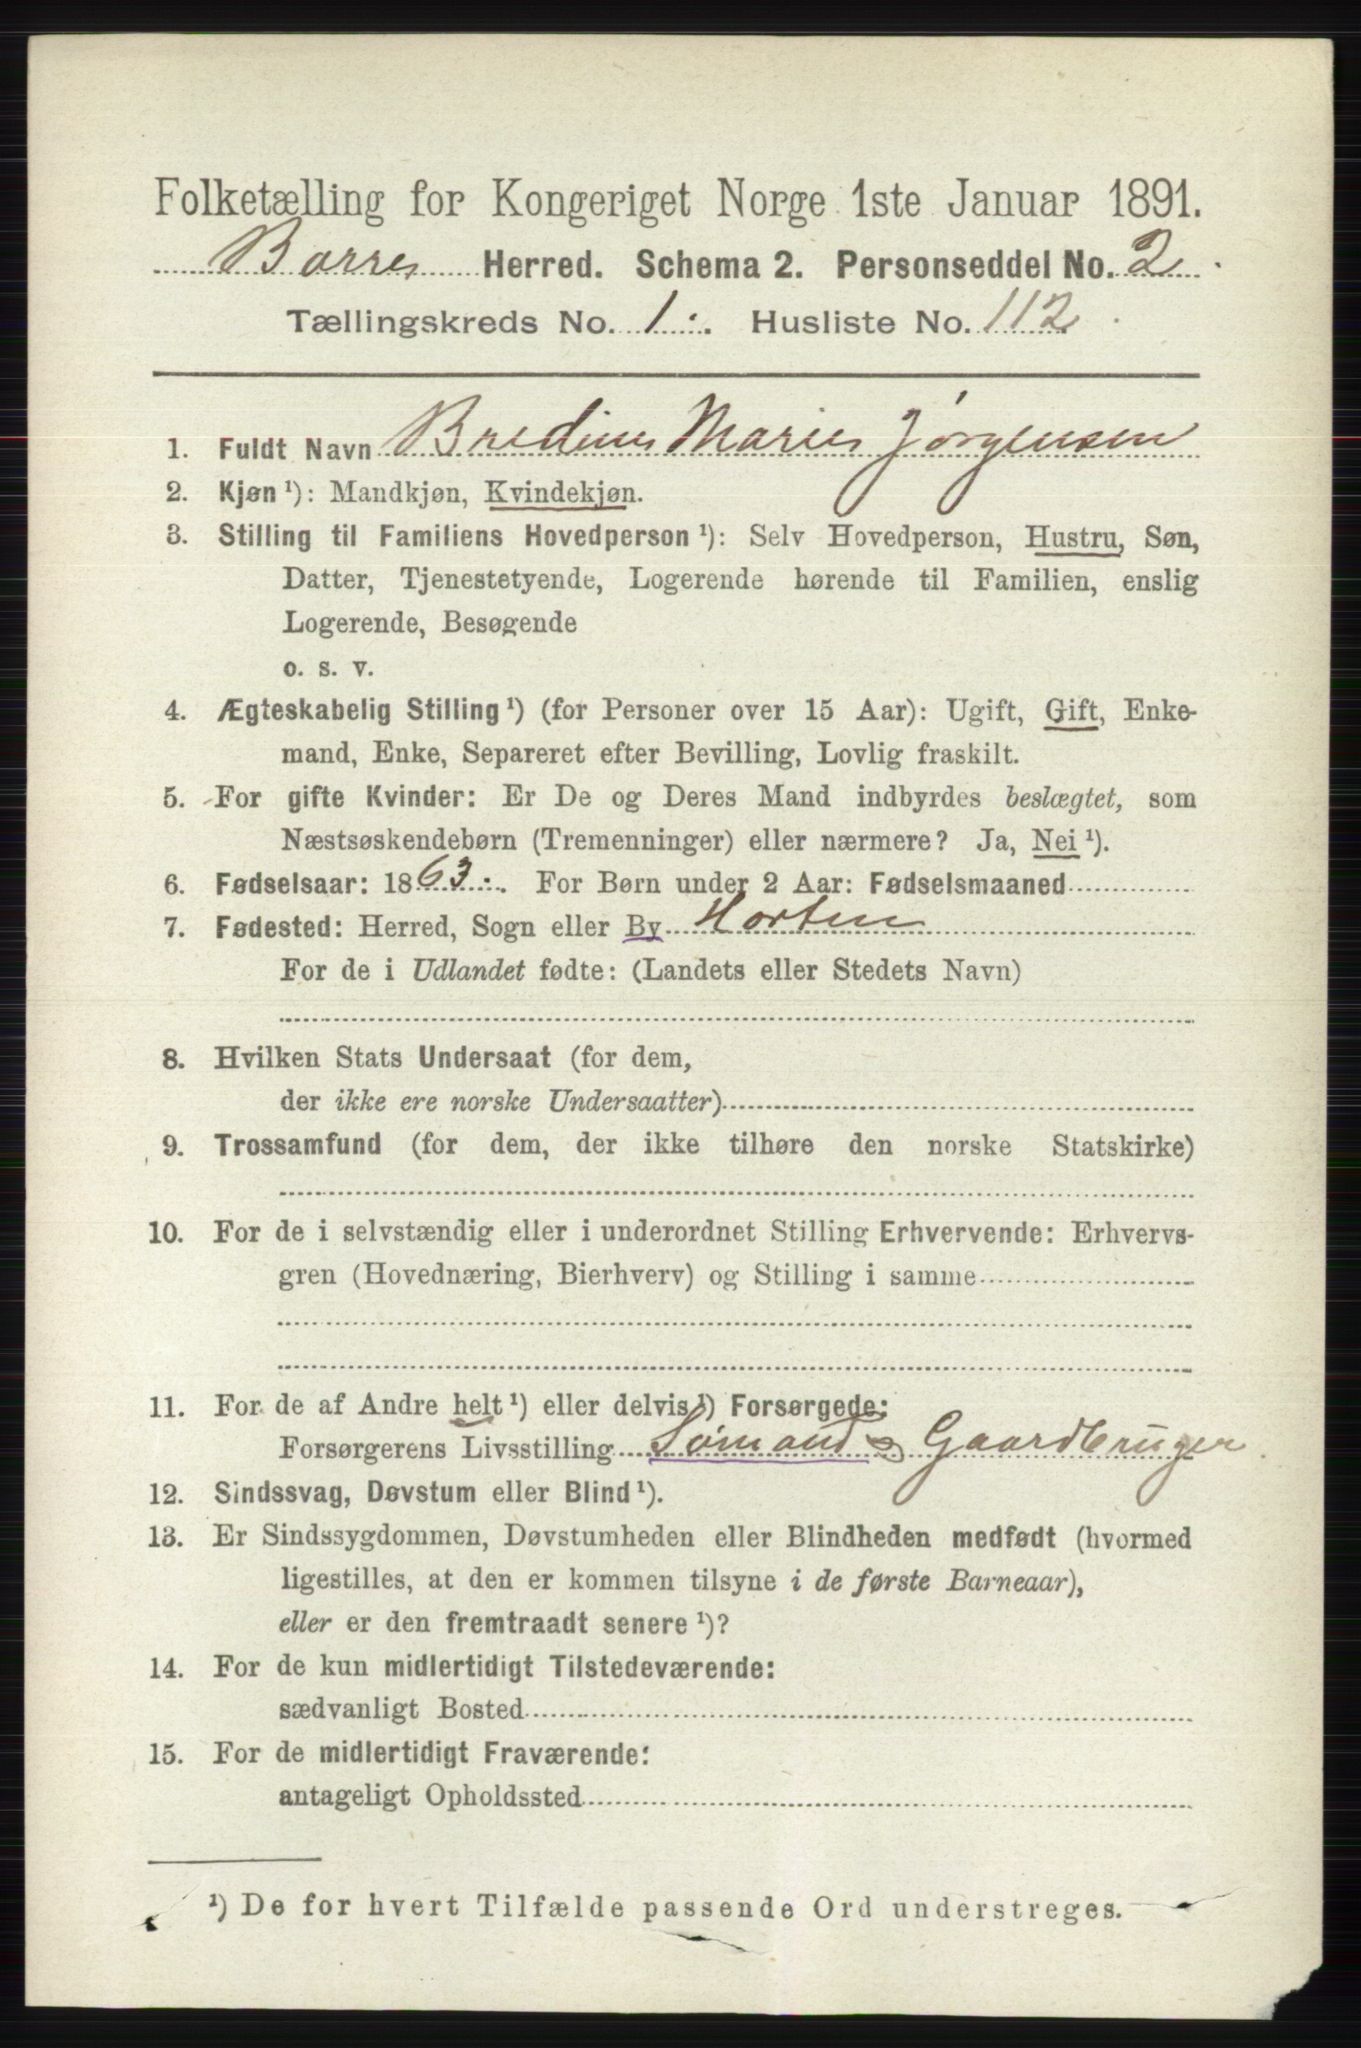 Folketælling for Kongeriget Norge 1ste Januar 1891.
Borre Herred. Schema 2. Personseddel No. 2.
Tællingskreds No. 1. Husliste No. 112.
1. Fuldt Navn Bredine Marie Jørgensen
2. Kjøn ¹): Mandkjøn, Kvindekjøn.
3. Stilling til Familiens Hovedperson ¹): Selv Hovedperson, Hustru, Søn,
Datter, Tjenestetyende, Logerende hørende til Familien, enslig
Logerende, Besøgende
o. s. v.
4. Ægteskabelig Stilling ¹) (for Personer over 15 Aar): Ugift, Gift, Enke-
mand, Enke, Separeret efter Bevilling, Lovlig fraskilt.
5. For gifte Kvinder: Er De og Deres Mand indbyrdes beslægtet, som
Næstsøskendebørn (Tremenninger) eller nærmere? Ja, Nei ¹).
6. Fødselsaar: 1863. For Børn under 2 Aar: Fødselsmaaned
7. Fødested: Herred, Sogn eller By Horten
For de i Udlandet fødte: (Landets eller Stedets Navn)
8. Hvilken Stats Undersaat (for dem,
der ikke ere norske Undersaatter)
9. Trossamfund (for dem, der ikke tilhøre den norske Statskirke)
10. For de i selvstændig eller i underordnet Stilling Erhvervende: Erhvervs-
gren (Hovednæring, Bierhverv) og Stilling i samme
11. For de af Andre helt ¹) eller delvis ¹) Forsørgede:
Forsørgerens Livsstilling Sømand & Gaardbruger
12. Sindssvag, Døvstum eller Blind ¹).
13. Er Sindssygdommen, Døvstumheden eller Blindheden medfødt (hvormed
ligestilles, at den er kommen tilsyne i de første Barneaar),
eller er den fremtraadt senere ¹)?
14. For de kun midlertidigt Tilstedeværende:
sædvanligt Bosted
15. For de midlertidigt Fraværende:
antageligt Opholdssted
¹) De for hvert Tilfælde passende Ord understreges.